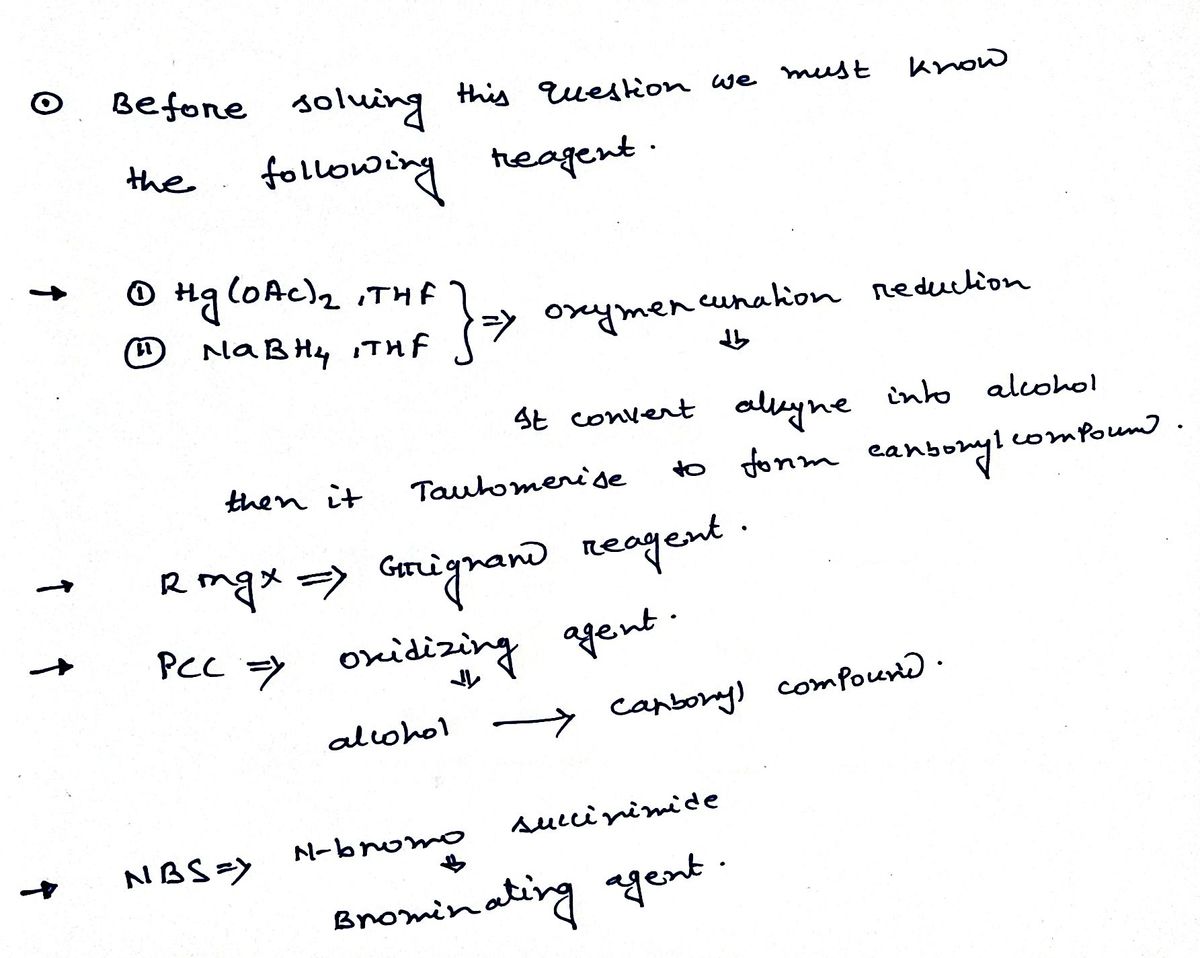 ⊙ Before solving this question we must know
the following reagent.
→ ① Hg(OAc)2 ,THF } ⇒ oxymercuration reduction
(ii) NaBH4 ,THF ⇓
It convert alkyne into alcohol
then it Tautomerise to form carbonyl compound.
→ RMgX ⇒ Grignard reagent.
→ PCC ⇒ oxidizing agent.
⇓
alcohol ⟶ carbonyl compound.
→ NBS ⇒ N-bromo succinimide
⇓
Brominating agent.